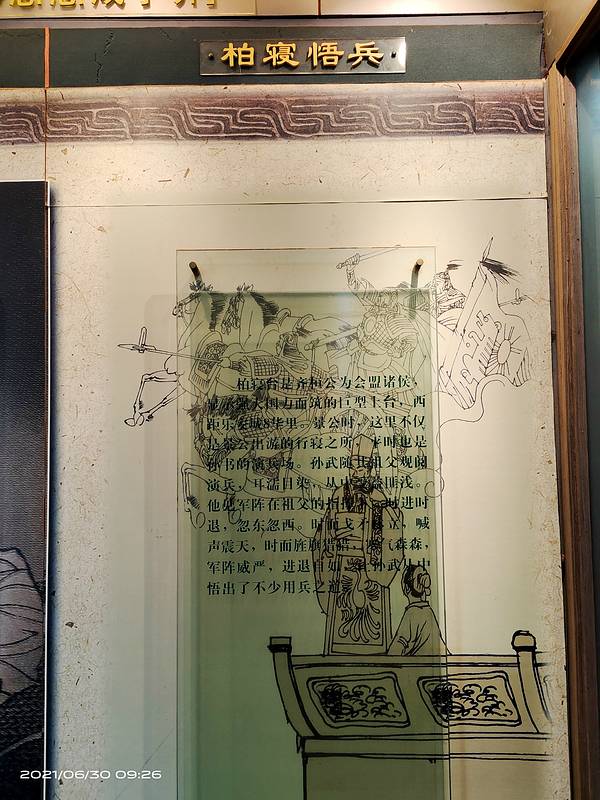 柏寝悟兵
柏寝台是齐桓公为会盟诸侯，
显示强大国力而筑的巨型土台，西
距乐安城8华里。景公时，这里不仅
是景公出游的行寝之所，平时也是
孙书的演兵场。孙武随其祖父观阅
演兵，耳濡目染，从中受益匪浅。
他见军阵在祖父的指挥下，时进时
退，忽东忽西。时而戈矛
喊
声震天，时而旌旗猎猎，
气森森，
军阵威严，进退自如，
孙武从中
悟出了不少用兵之道。
2021/06/30 09:26